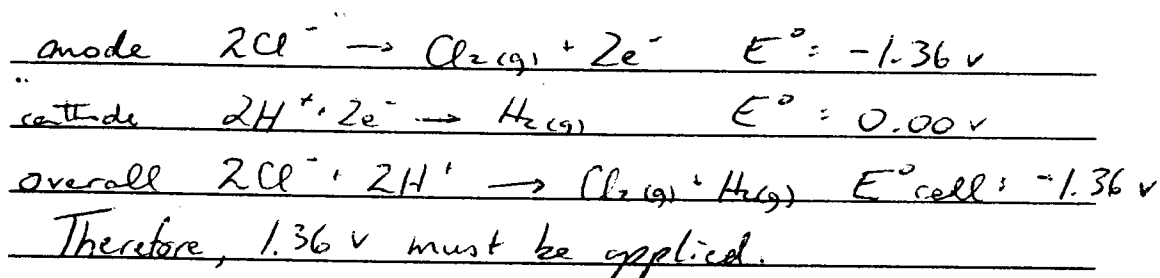 anode 2Cl⁻ → Cl₂(g) + 2e⁻ E° = -1.36 v
cathode 2H⁺ + 2e⁻ → H₂(g) E° = 0.00 v
overall 2Cl⁻ + 2H⁺ → Cl₂(g) + H₂(g) E°cell = -1.36 v
Therefore, 1.36 v must be applied.